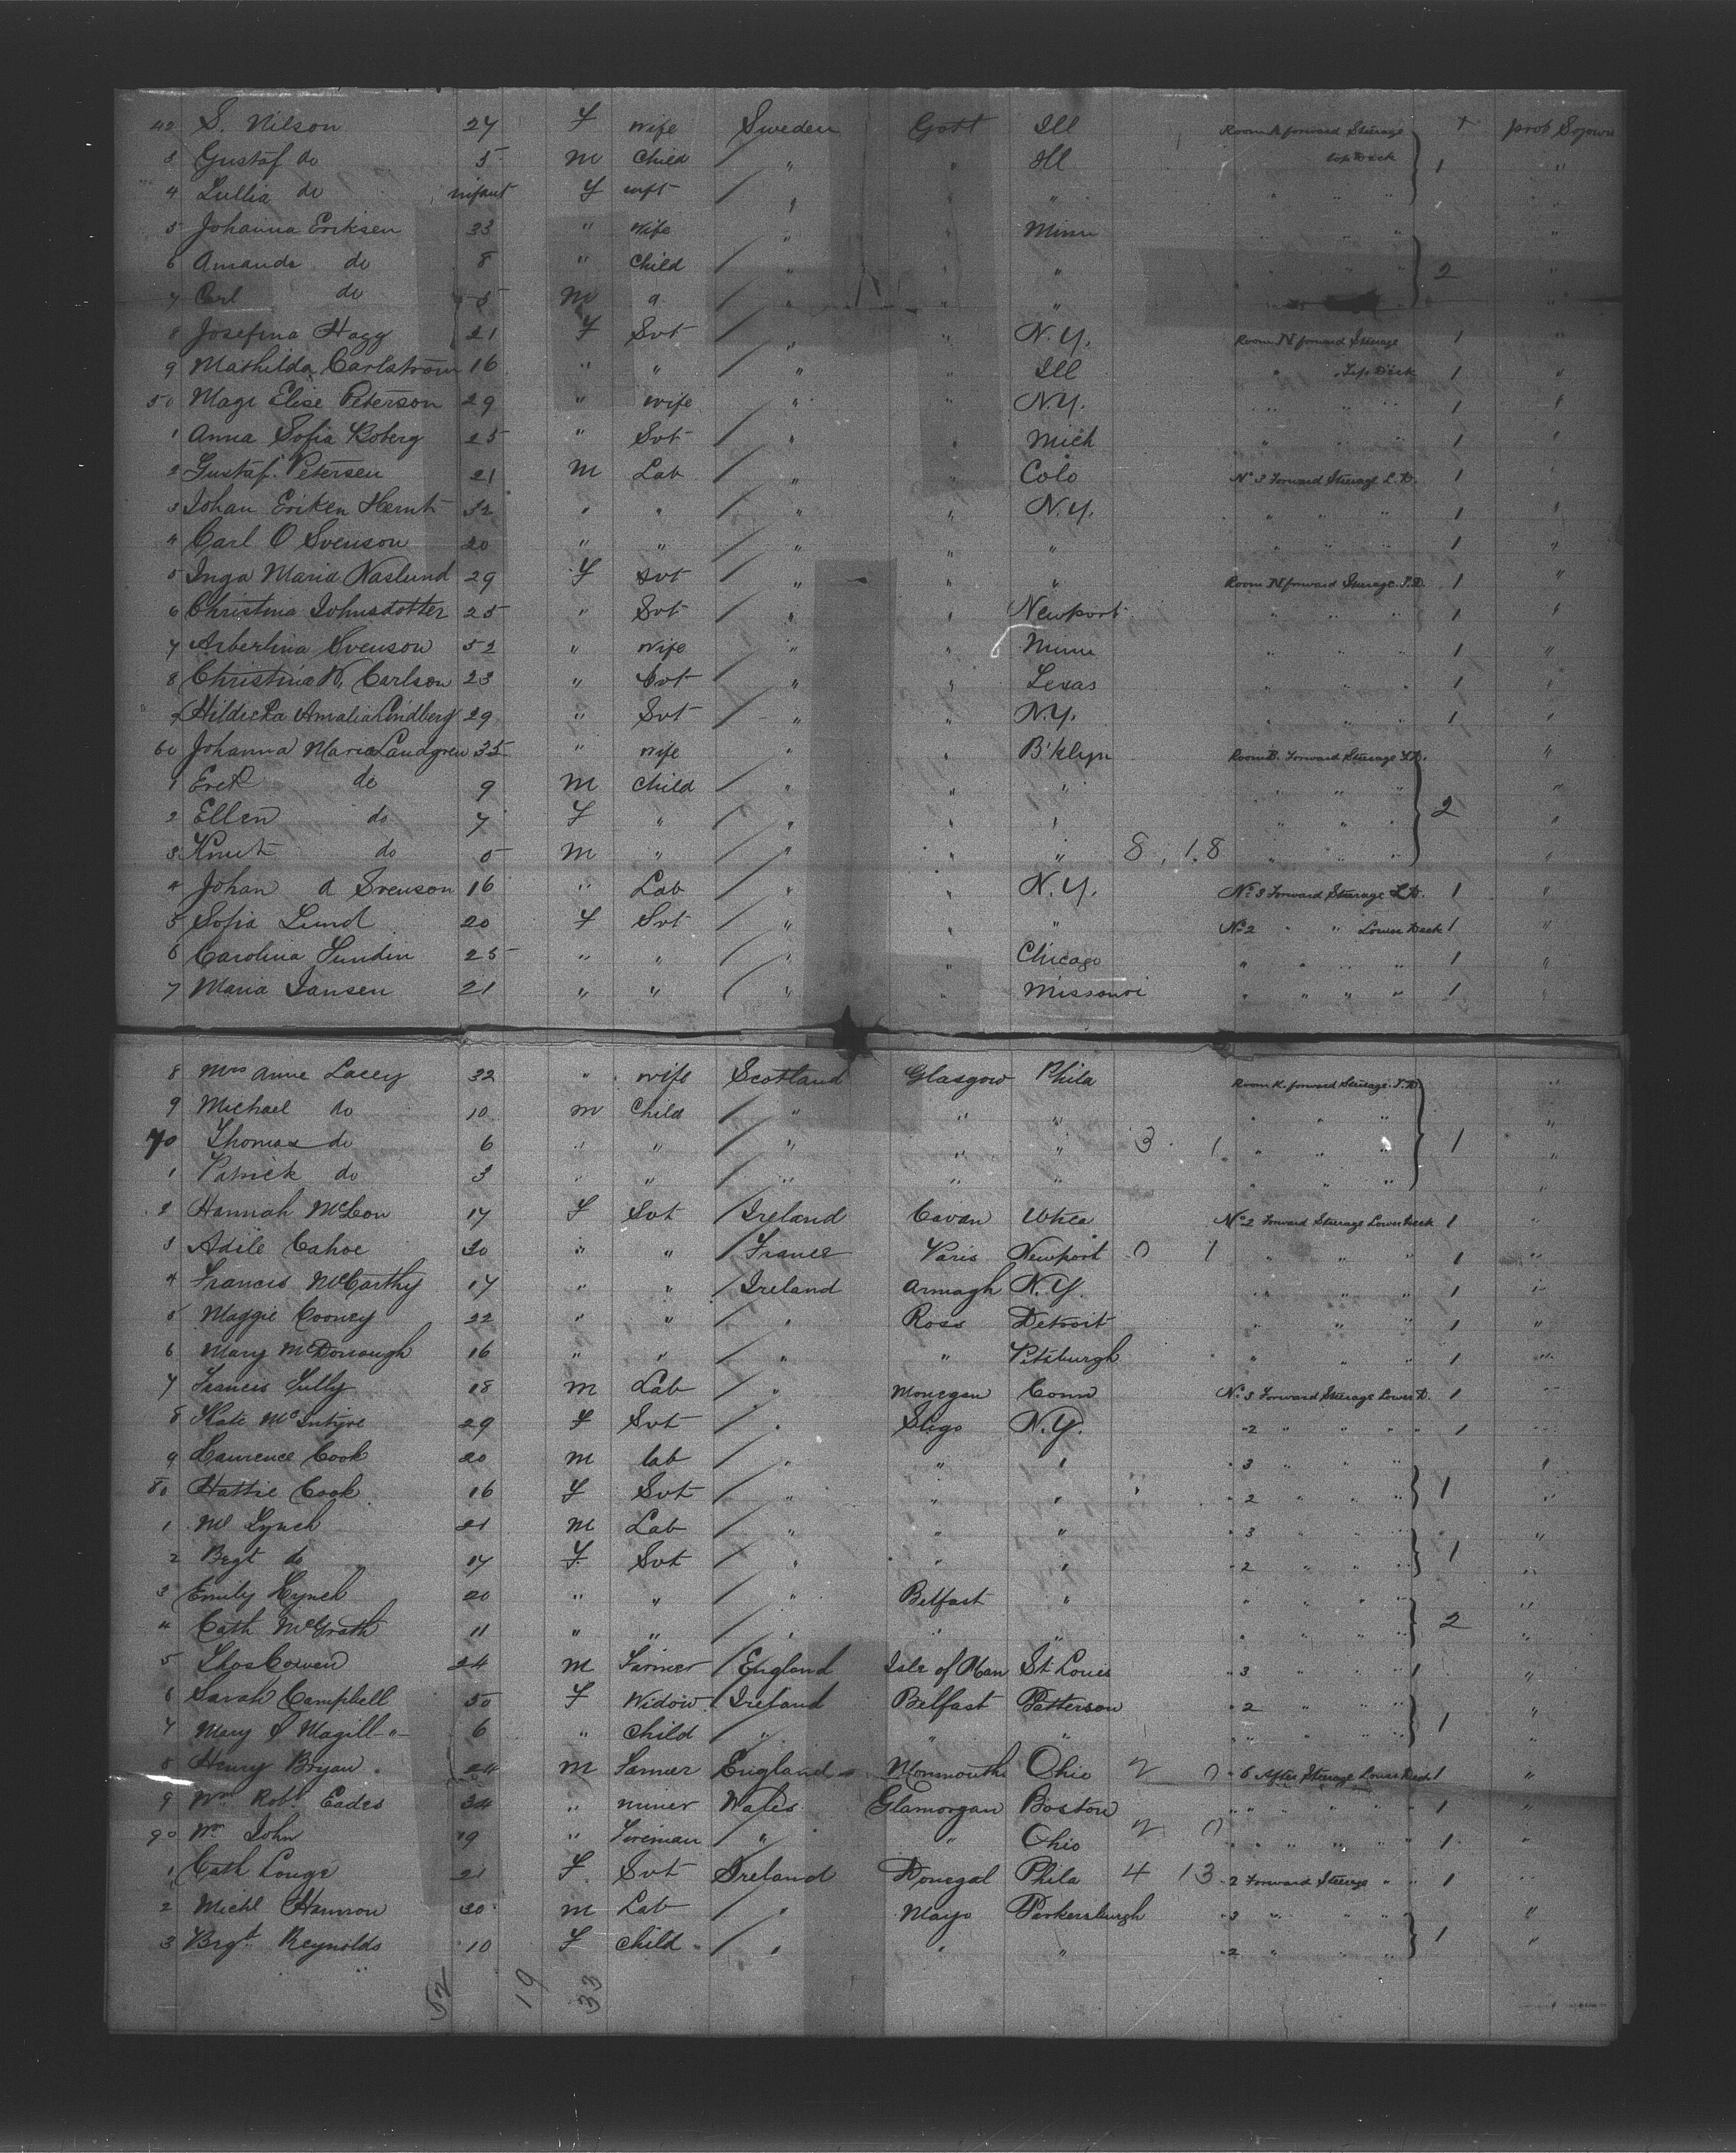 42 S. Nilson 27 F wife Sweden Gott Ill Room A forward Steerage 1 prob Sojourn
3 Gustaf do 5 M Child / " " Ill top Deck 1 "
4 Lullia do infant F inft / " "
5 Johanna Eriksen 33 " wife " " Minn " " " "
6 Amanda do 8 " Child / " " " " " " 2 "
7 Carl do 5 M " / " " " "
8 Josefina Hagg 21 F Svt / " " N.Y. Room N forward Steerage 1 "
9 Mathilda Carlstrom 16 " " / " " Ill " Top Deck 1 "
50 Elise Peterson 29 " wife / " " N.Y. " " " 1 "
1 Anna Sofia Boberg 25 " Svt / " " Mich " " " 1 "
2 Gustaf Petersen 21 M Lab / " " Colo No 3 Forward Steerage L.D. 1 "
3 Johan Eriken 32 " " / " " N.Y. " " " 1 "
4 Carl O Svenson 20 " " / " " " " " " 1 "
5 Inga Maria Naslund 29 F Svt / " " " Room N forward Steerage T.D. 1 "
6 Christina Johnsdotter 25 " Svt / " " Newport " " " 1 "
7 Svenson 52 " wife " " Minn " " " 1 "
8 Christina N. Carlson 23 " Svt / " " Texas " " " 1 "
9 Amalia Lindberg 29 " Svt / " " N.Y. " " " 1 "
60 Johanna Maria Landgren 35 " wife " " B'klyn Room B. Forward Steerage T.D. "
1 Erik do 9 M Child / " " " " " " "
2 Ellen do 7 F " / " " " " " " 2 "
3 Knut do 5 M " / " " " 8 . 18 " " " "
4 Johan A Svenson 16 " Lab / " " N.Y. No 3 Forward Steerage L.D. 1 "
5 Sofia Lund 20 F Svt / " " " No 2 " " Lower Deck 1 "
6 Carolina Sundin 25 " " / " " Chicago " " " " 1 "
7 Maria Jansen 21 " " / " " Missouri " " " " 1 "
8 Mrs Anne Lacey 32 " wife Scotland Glasgow Phila Room K. forward Steerage T.D. "
9 Michael do 10 M Child / " " " " " " "
70 Thomas do 6 " " / " " " 3 . 1 " " " 1 "
1 Patrick do 3 " " / " " " " " " "
2 Hannah 17 F Svt / Ireland Cavan Utica No 2 Forward Steerage Lower Deck 1 "
3 Adile Cahoe 30 " " / France Paris Newport 0 1 " " " 1 "
4 Francis McCarthy 17 " " / Ireland Armagh N.Y. " " " 1 "
5 Maggie Cooney 22 " " / " Ross Detroit " " " 1 "
6 Mary McDonough 16 " " / " " Pittsburgh " " " 1 "
7 Francis Lully 18 M Lab / " Monegan Conn No 3 Forward Steerage Lower D. 1 "
8 Kate McIntyre 29 F Svt / " Sligo N.Y. " 2 " " " " 1 "
9 Lawrence Cook 20 M lab / " " " " 3 " " " "
80 Hattie Cook 16 F Svt / " " " " 2 " " " 1 "
1 M Lynch 21 M Lab / " " " " 3 " " " "
2 Begt do 17 F Svt / " " " " 2 " " " 1 "
3 Emily Lynch 20 " " / " Belfast " " " " " "
4 Cath McGrath 11 " " / " " " " " " " 2 "
5 Thos Cowen 24 M Farmer / England Isle of Man St Louis " 3 " " 1 "
6 Sarah Campbell 50 F Widow / Ireland Belfast Patterson " 2 " " "
7 Mary S Magill 6 " Child / " " " " " " " 1 "
8 Henry Bryan 24 M Farmer England Monmouth Ohio 2 0 " 6 After Steerage Lower Deck 1 "
9 Wm Robt Eades 34 " miner Wales Glamorgan Boston " " " " " 1 "
90 Wm John 19 " Fireman " " Ohio 2 0 " " " " " 1 "
1 Cath 21 F Svt Ireland Donegal Phila 4 13 " 2 Forward Steerage " " 1 "
2 Michl Hannon 30 M Lab / " Mayo Parkersburgh " 3 " " " "
3 Brgt Reynolds 10 F Child / " " " " 2 " " " 1 "
52 19 33